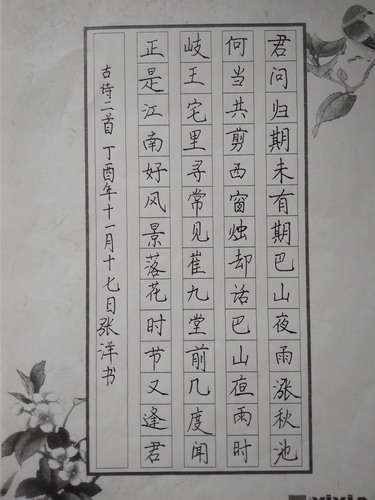 君问归期未有期巴山夜雨涨秋池
何当共剪西窗烛却话巴山夜雨时
岐王宅里寻常见崔九堂前几度闻
正是江南好风景落花时节又逢君
古诗二首 丁酉年十一月十七日张洋书